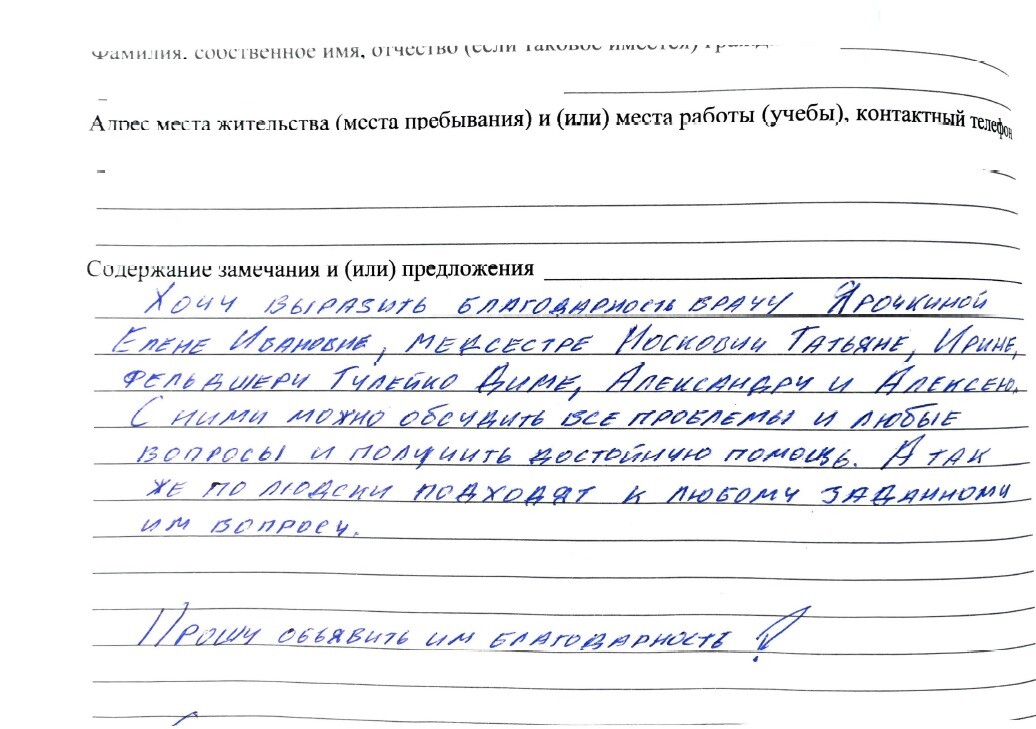 Фамилия, собственное имя, отчество (если таковое имеется)
Адрес места жительства (места пребывания) и (или) места работы (учебы), контактный телефон
Содержание замечания и (или) предложения
Хочу выразить благодарность врачу Ярочкиной
Елене Ивановне, медсестре Московии Татьяне, Ирине,
фельдшеру Тулейко Диме, Александру и Алексею.
С ними можно обсудить все проблемы и любые
вопросы и получить достойную помощь. А так
же по людски подходят к любому заданному
им вопросу.
Прошу обьявить им благодарность!